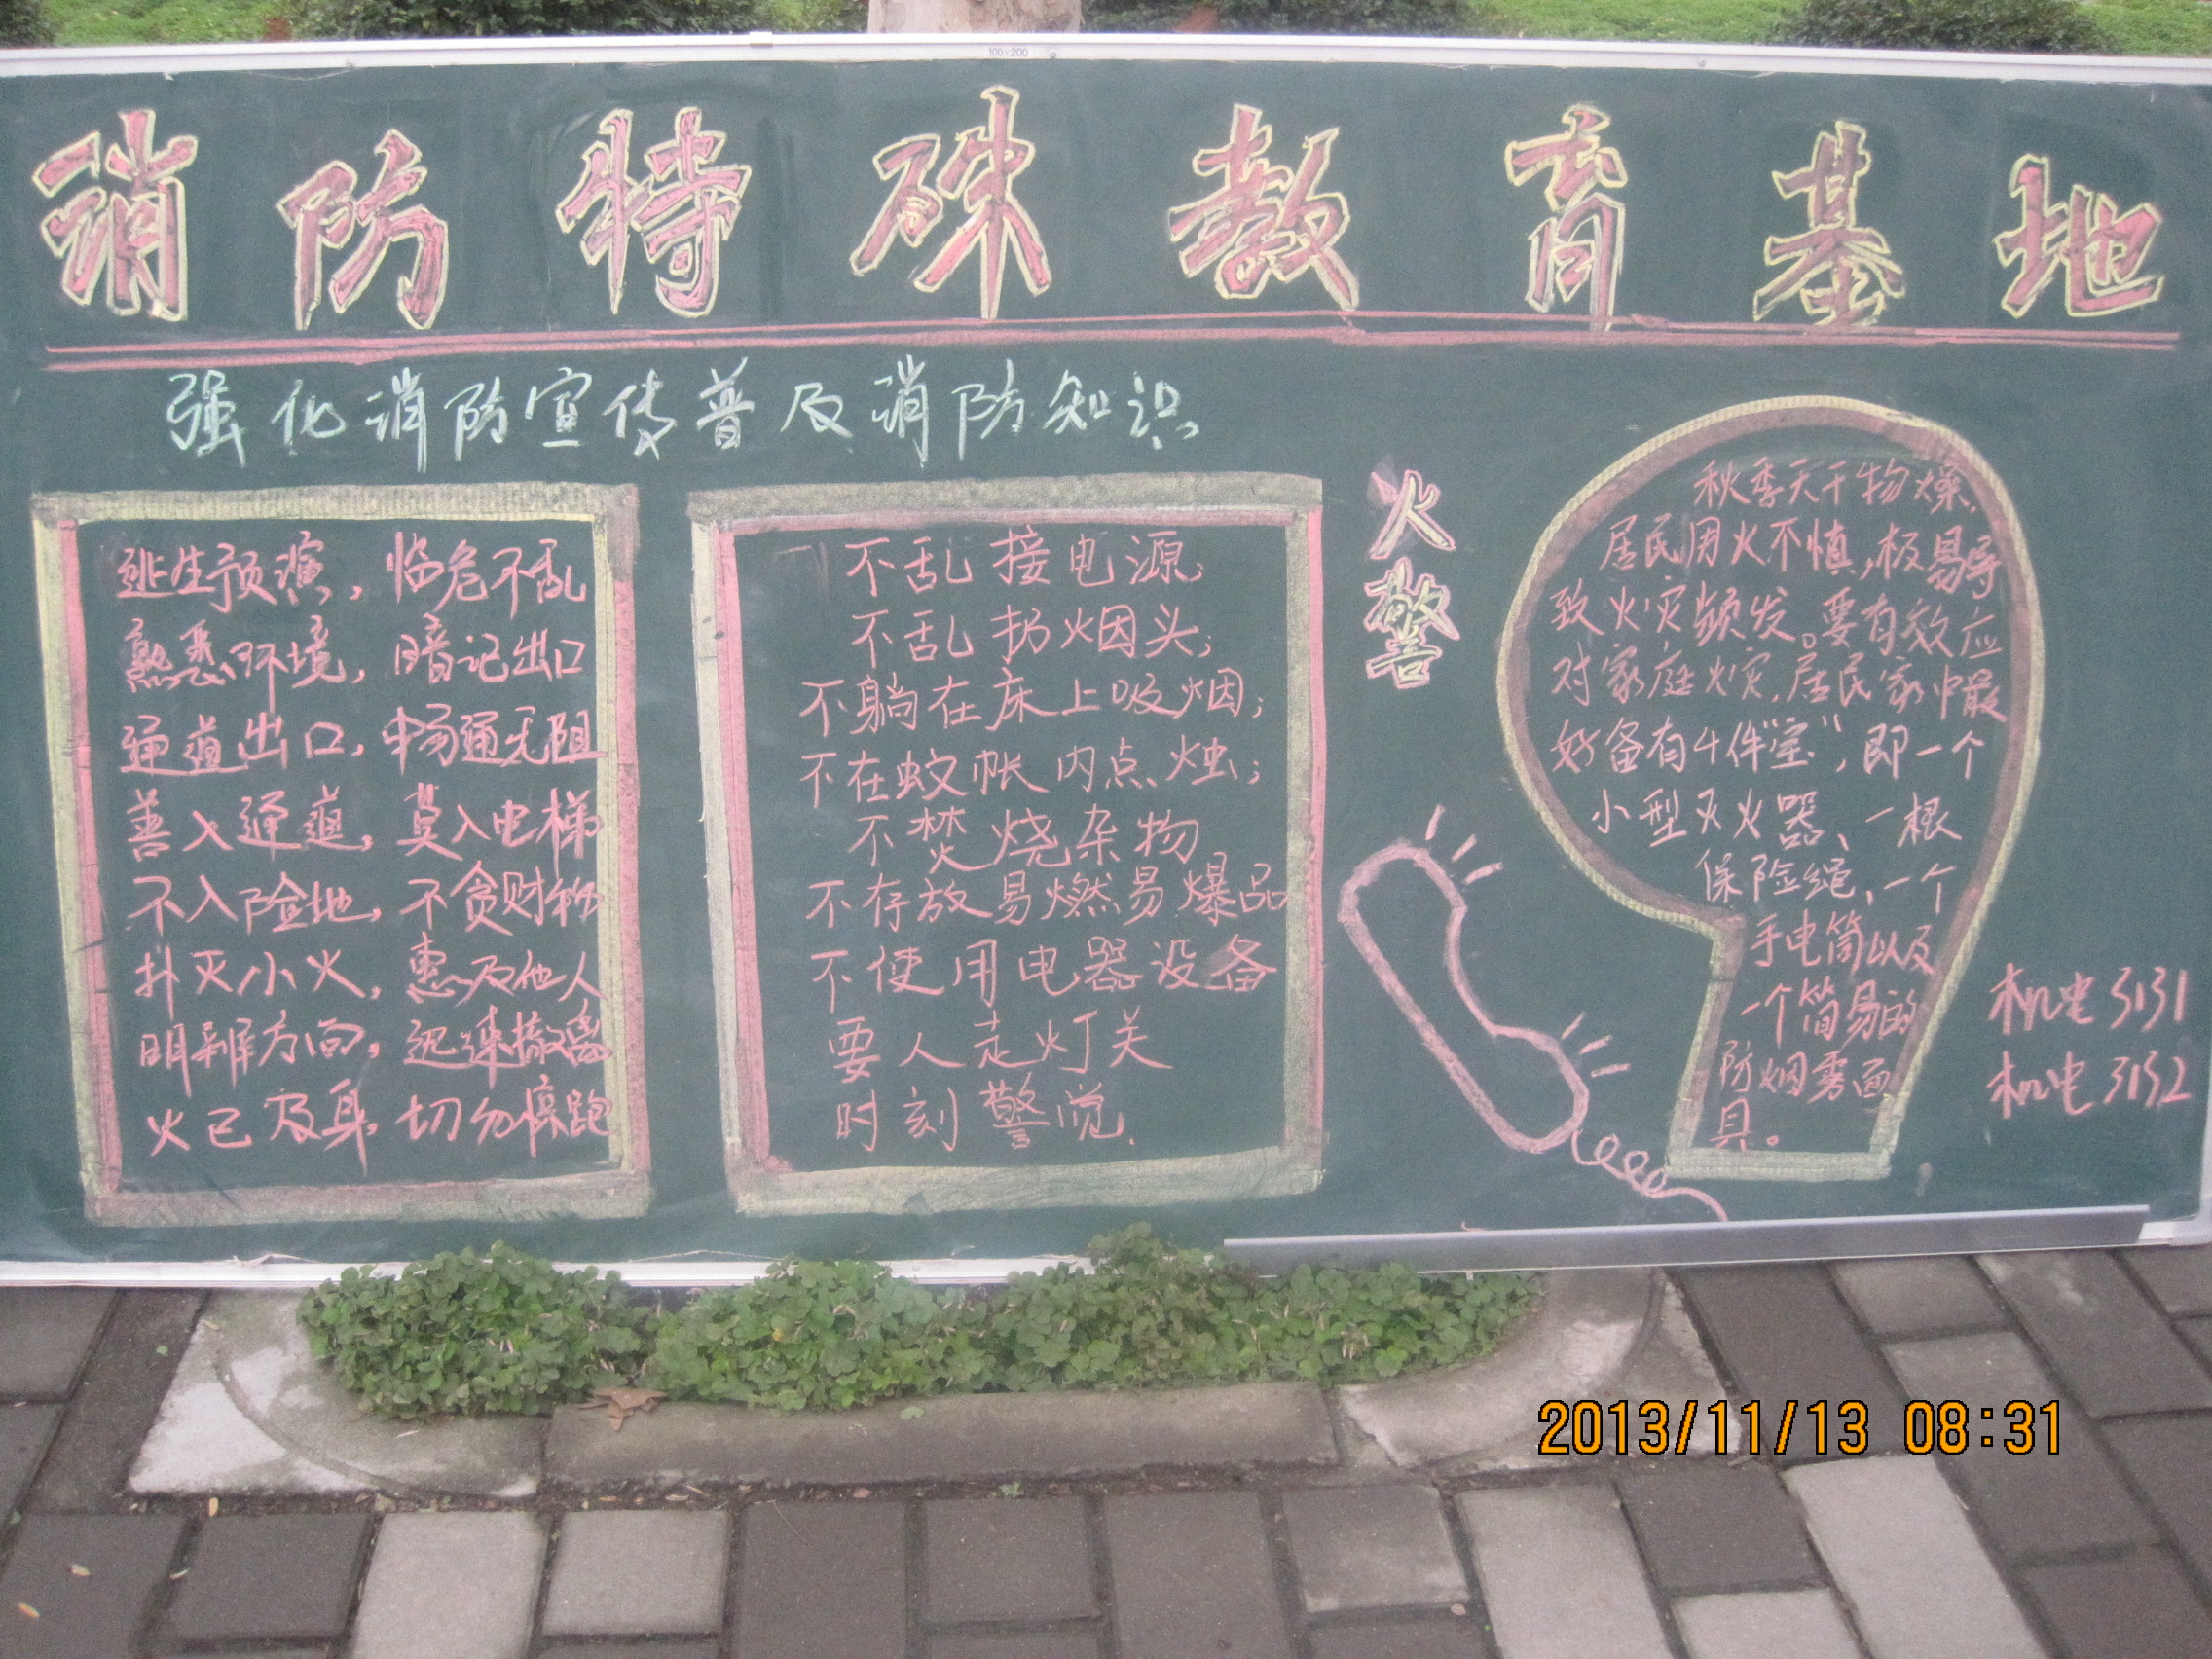 100×200
消防特殊教育基地
强化消防宣传普及消防知识
逃生预演，临危不乱
熟悉环境，暗记出口
通道出口，畅通无阻
善入通道，莫入电梯
不入险地，不贪财物
扑灭小火，惠及他人
明辨方向，迅速撤离
火已及身，切勿惊跑
不乱接电源；
不乱扔烟头；
不躺在床上吸烟；
不在蚊帐内点烛；
不焚烧杂物
不存放易燃易爆品
不使用电器设备
要人走灯关
时刻警觉．
火警
秋季天干物燥，
居民用火不慎，极易导
致火灾频发。要有效应
对家庭火灾，居民家中最
好备有4件“宝”，即一个
小型灭火器、一根
保险绳，一个
手电筒以及
一个简易的
防烟雾面
具。
机电3131
机电3132
2013/11/13 08:31